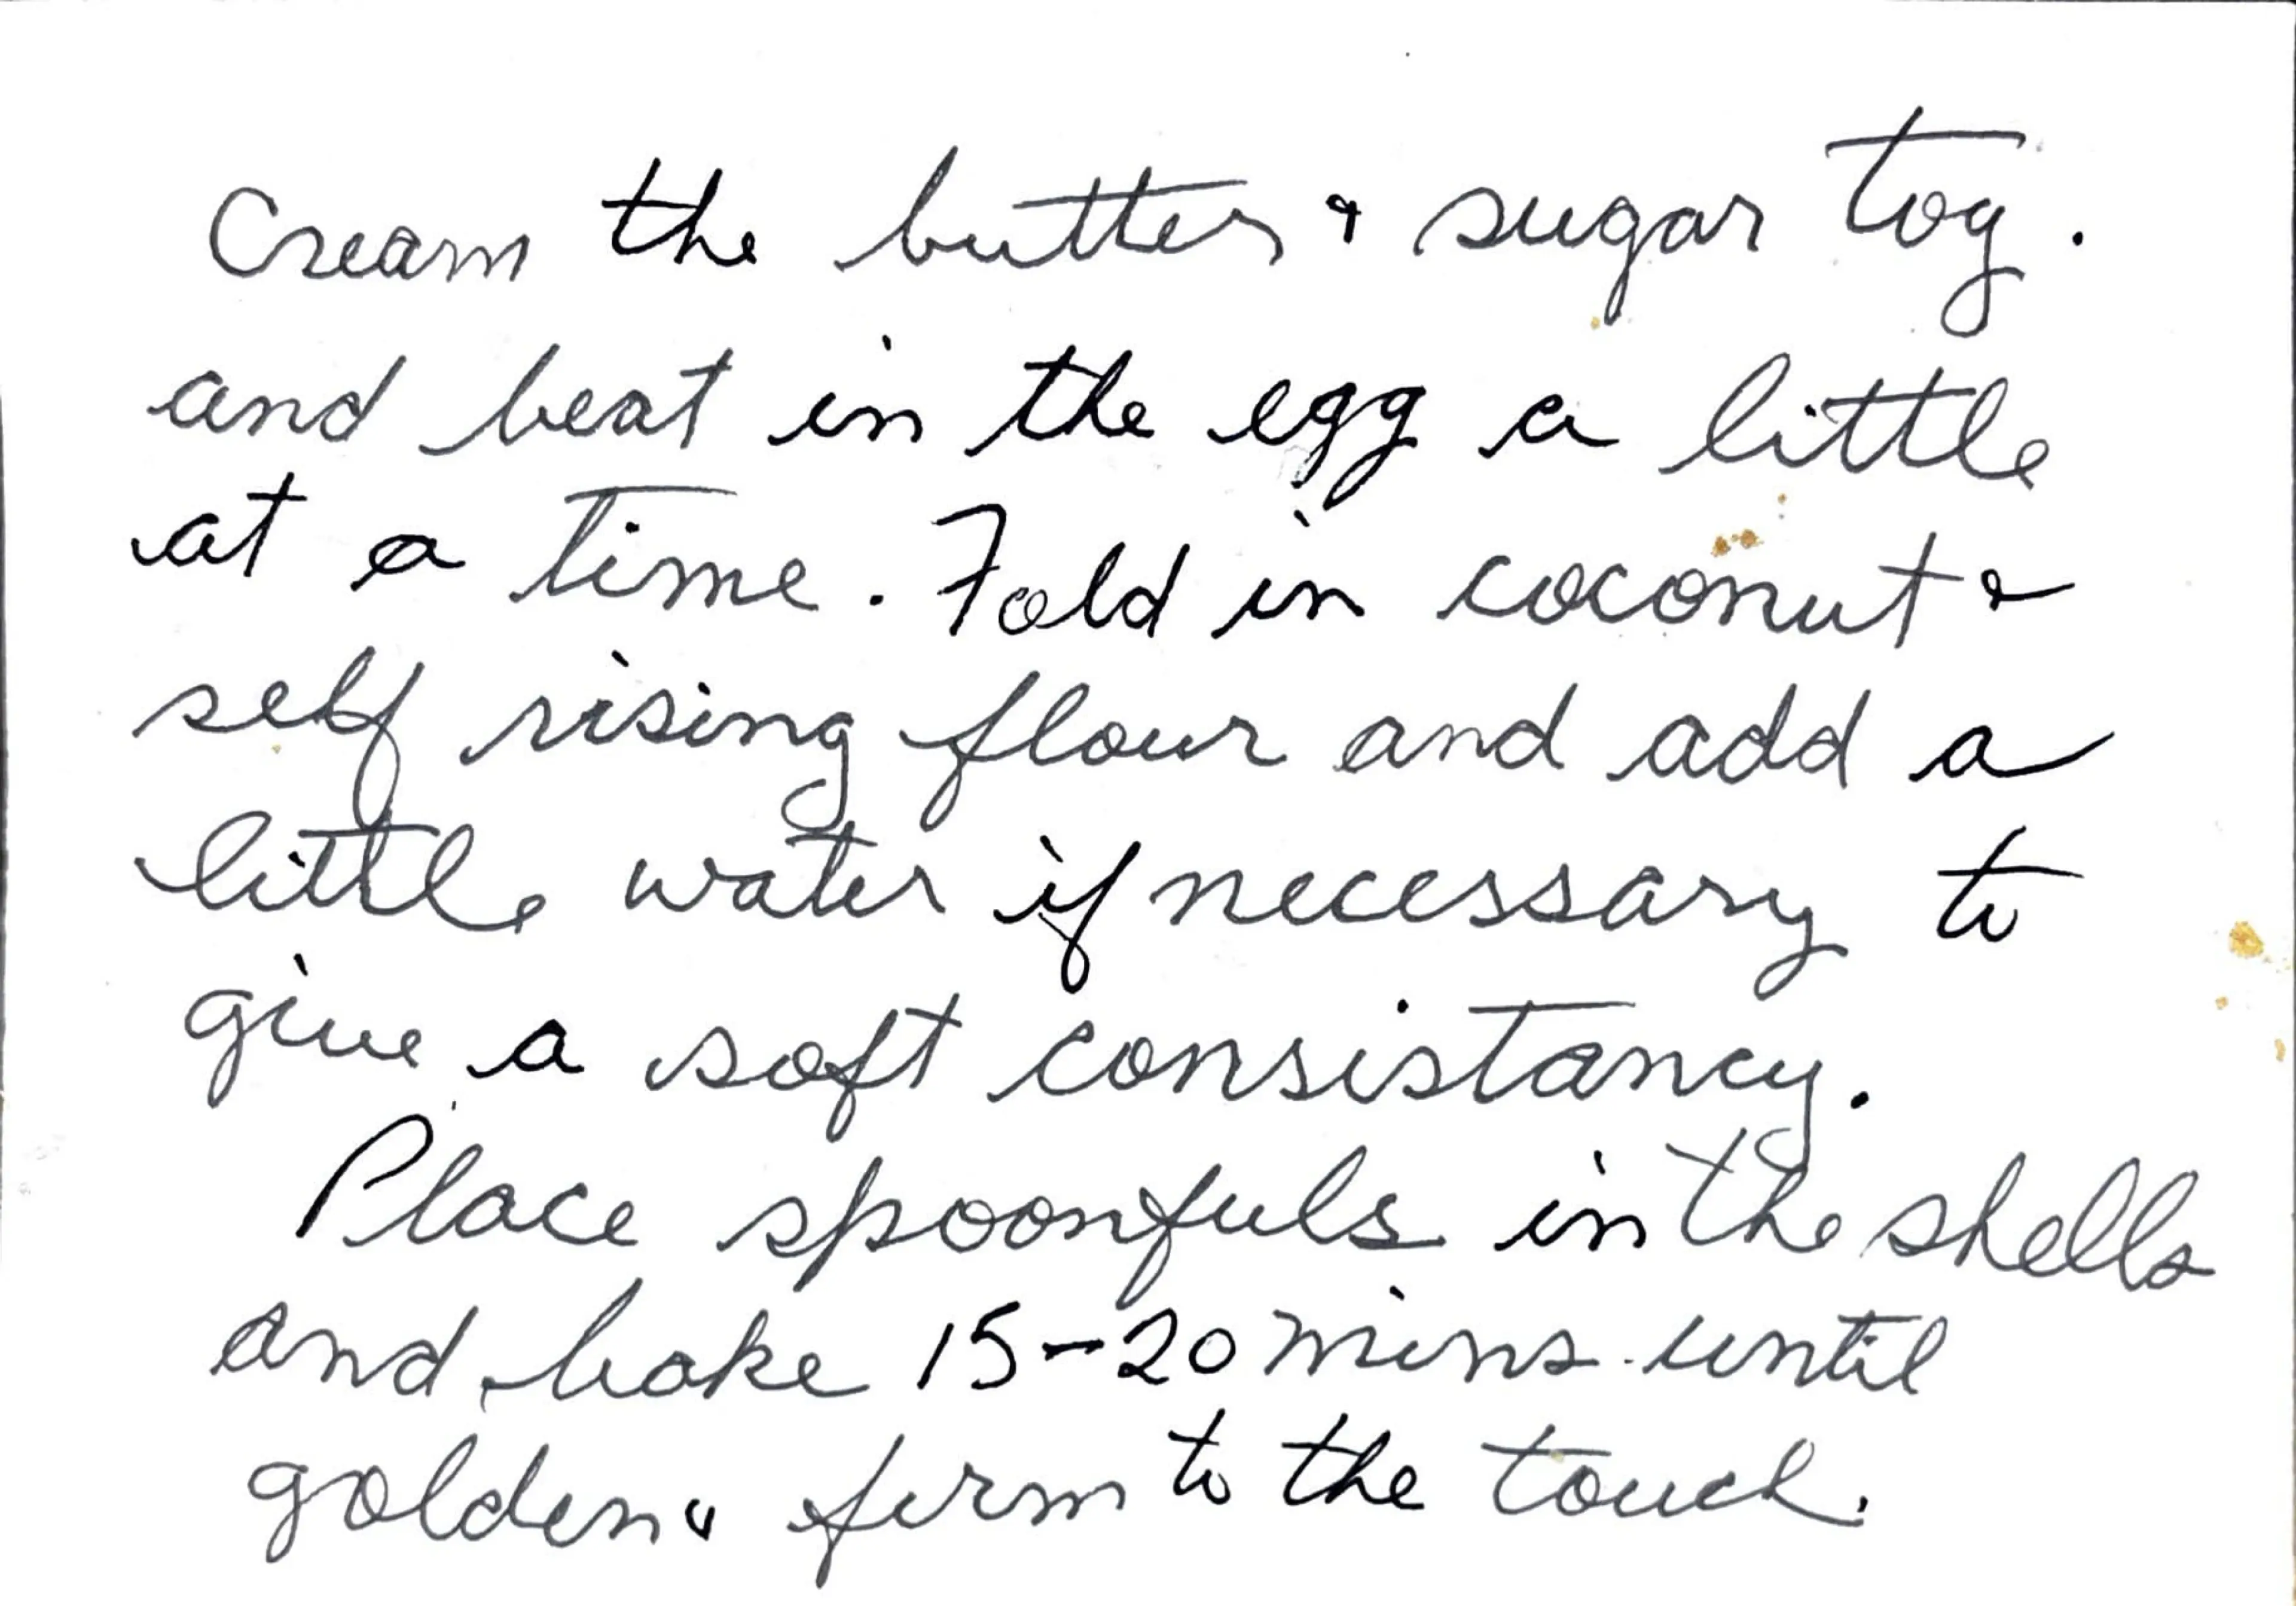 Cream the butter & sugar tog.
and beat in the egg a little
at a time. Fold in coconut &
self rising flour and add a
little water if necessary to
give a soft consistancy.
Place spoonfuls in the shells
and bake 15-20 mins. until
golden & firm to the touch.